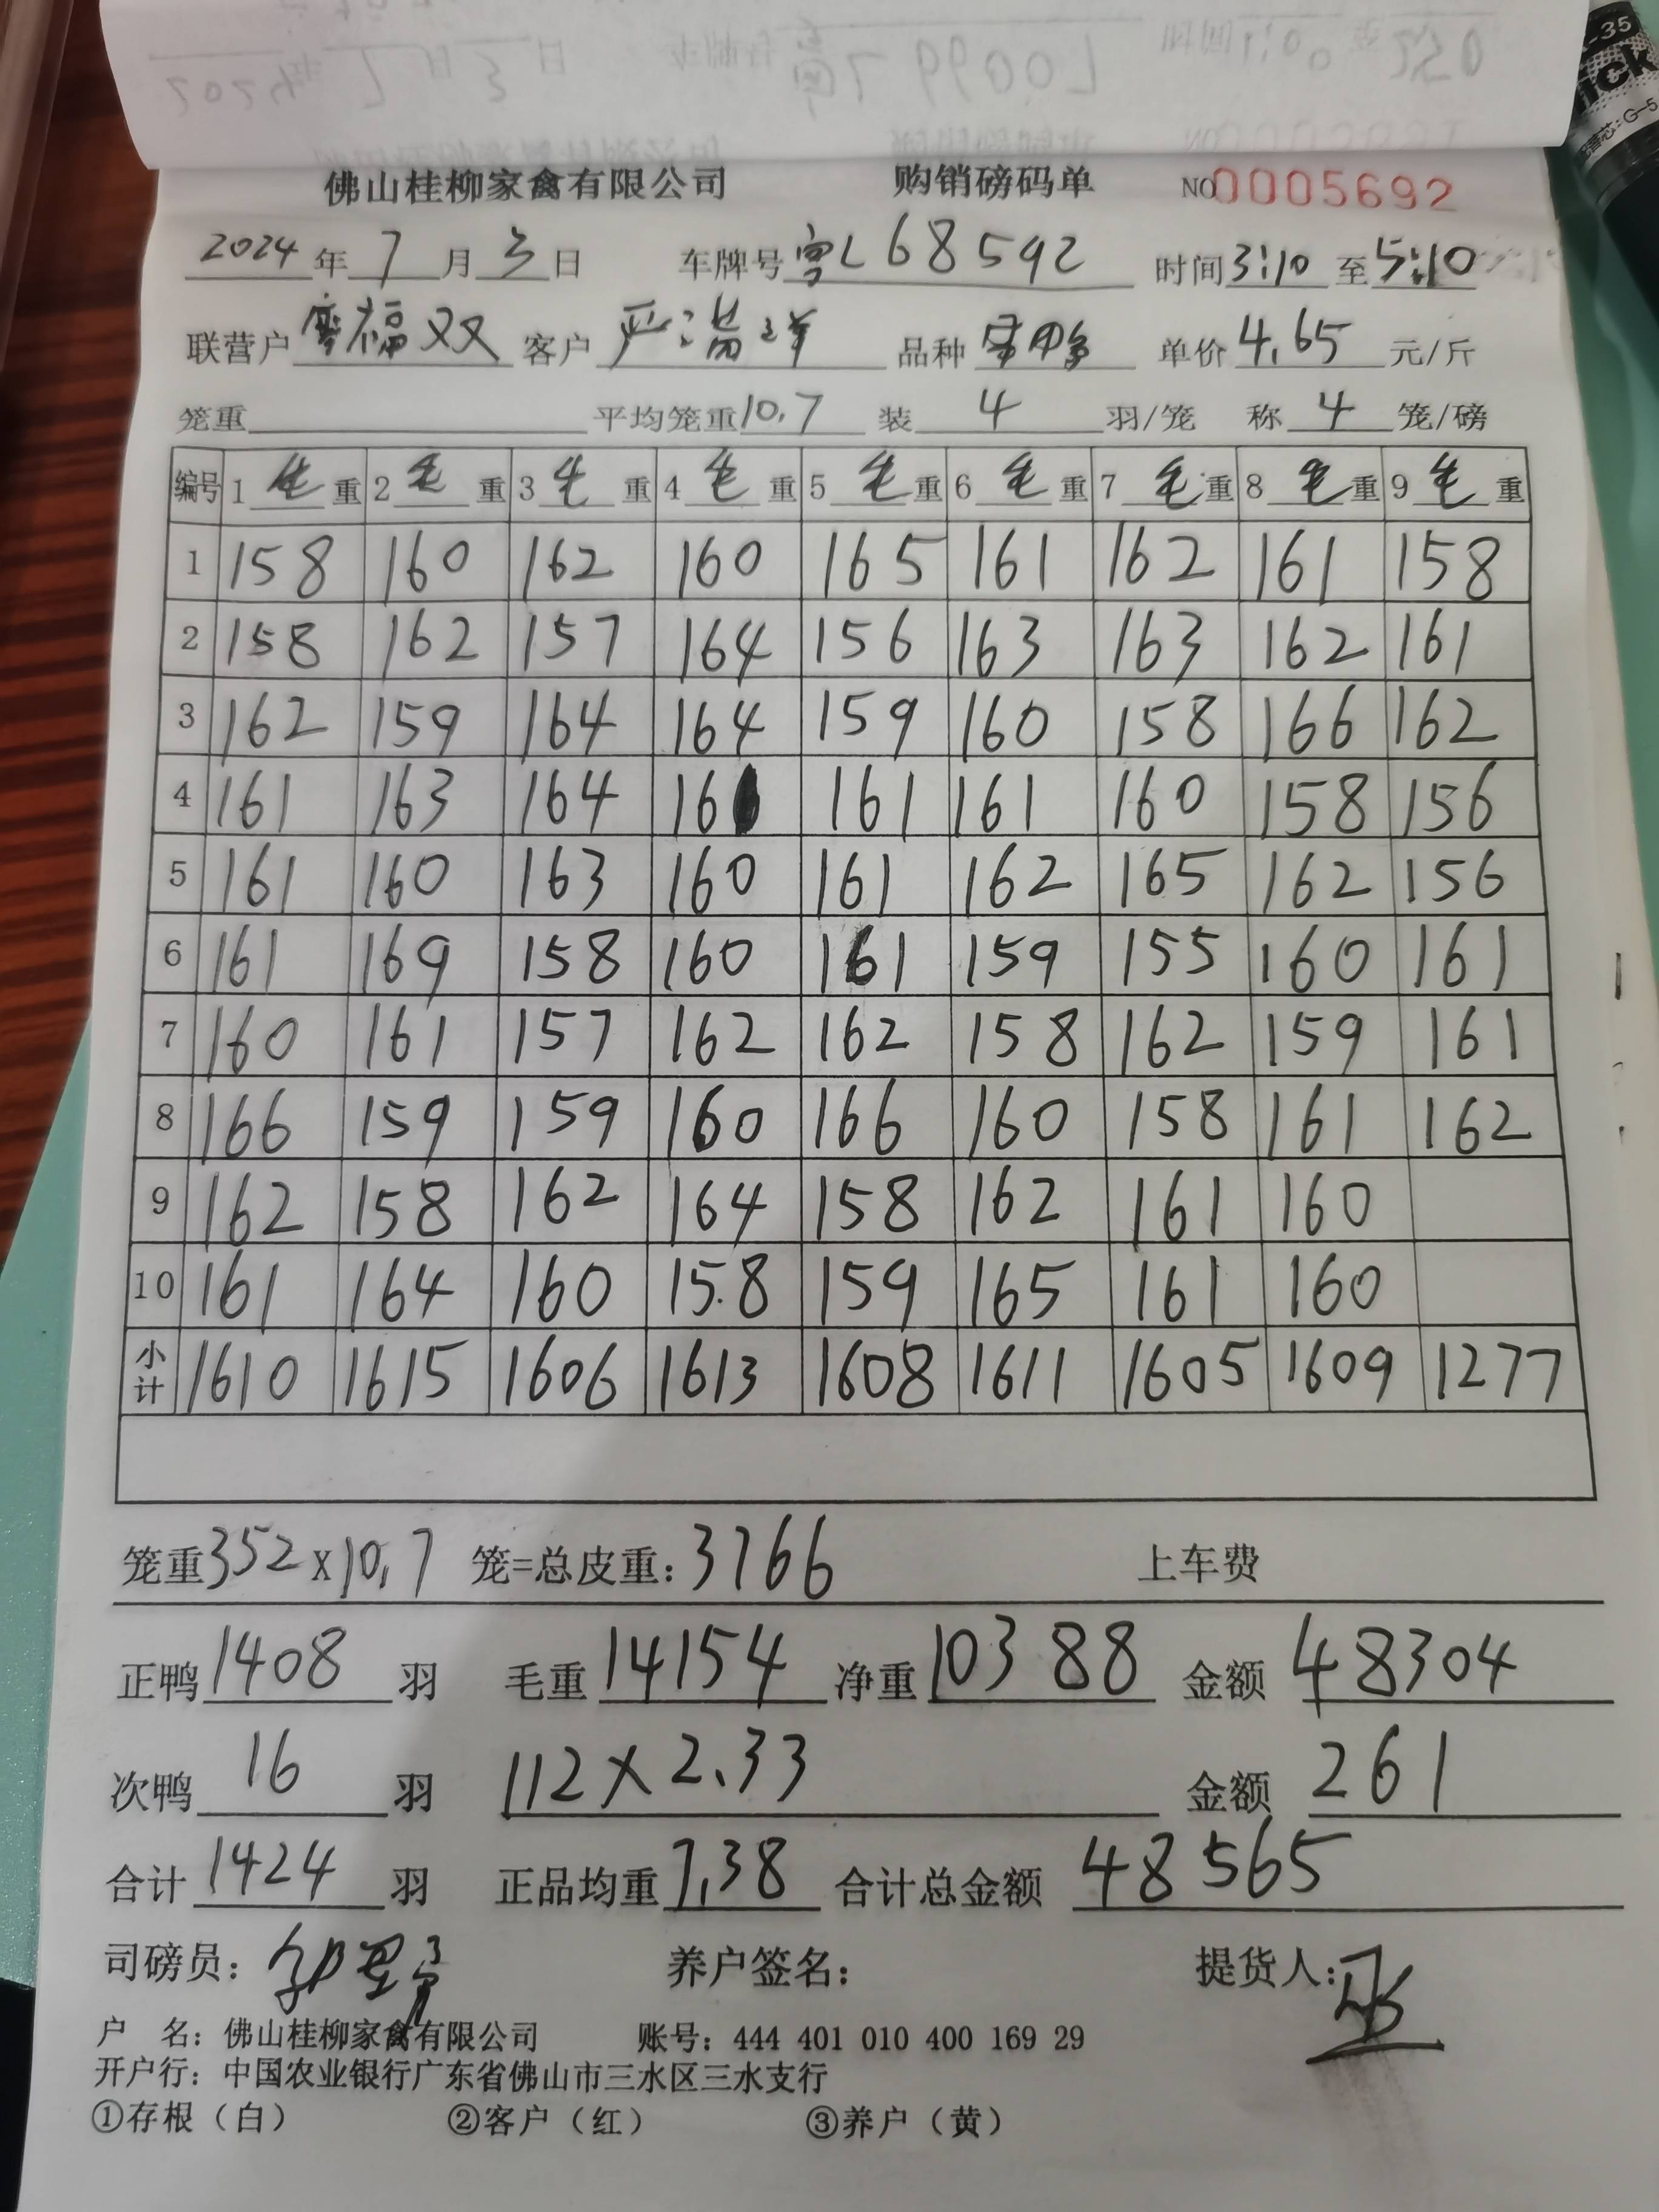 佛山桂柳家禽有限公司 购销磅码单 NO0005692
2024年7月3日 车牌号粤L68592 时间3:10至5:10
联营户廖福双 客户严 品种 单价4.65元/斤
笼重 平均笼重10.7 装4羽/笼 称4笼/磅
编号 1毛重 2毛重 3毛重 4毛重 5毛重 6毛重 7毛重 8毛重 9毛重
1 158 160 162 160 165 161 162 161 158
2 158 162 157 164 156 163 163 162 161
3 162 159 164 164 159 160 158 166 162
4 161 163 164 161 161 161 160 158 156
5 161 160 163 160 161 162 165 162 156
6 161 169 158 160 161 159 155 160 161
7 160 161 157 162 162 158 162 159 161
8 166 159 159 160 166 160 158 161 162
9 162 158 162 164 158 162 161 160
10 161 164 160 15.8 159 165 161 160
小计 1610 1615 1606 1613 1608 1611 1605 1609 1277
笼重352x10.7 笼=总皮重:3766 上车费
正鸭1408羽 毛重14154 净重10388 金额48304
次鸭16羽 112x2.33 金额261
合计1424羽 正品均重7.38 合计总金额48565
司磅员: 养户签名: 提货人:
户 名:佛山桂柳家禽有限公司 账号:444 401 010 400 169 29
开户行:中国农业银行广东省佛山市三水区三水支行
①存根（白） ②客户（红） ③养户（黄）